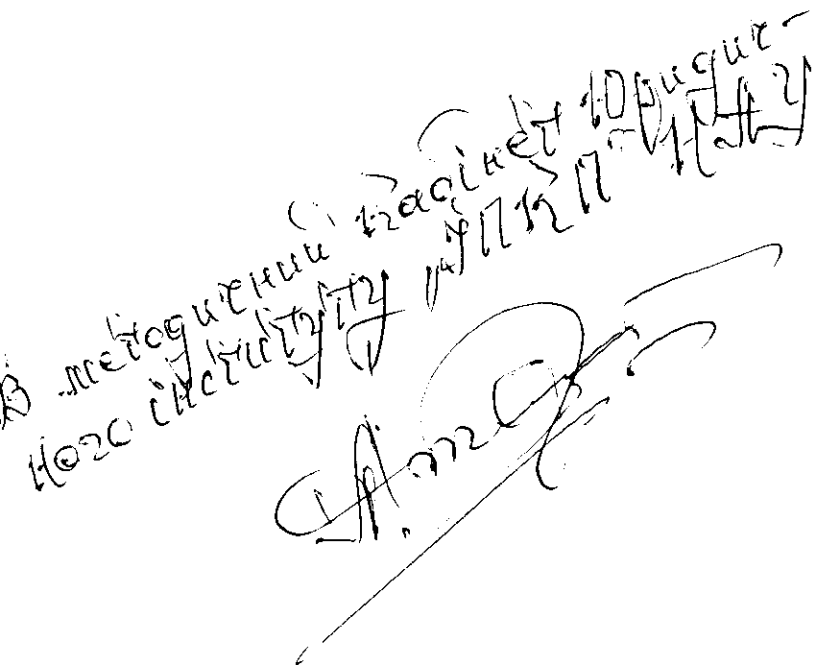 В методичний кабінет Юридич-
ного інституту